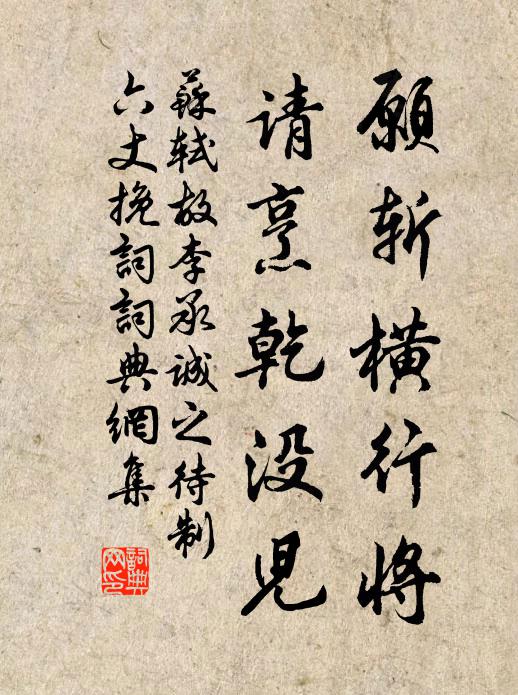 願斬橫行將
请烹乾没兒
蘇軾故李承诚之待制
六丈挽詞詞典網集
詞典网印